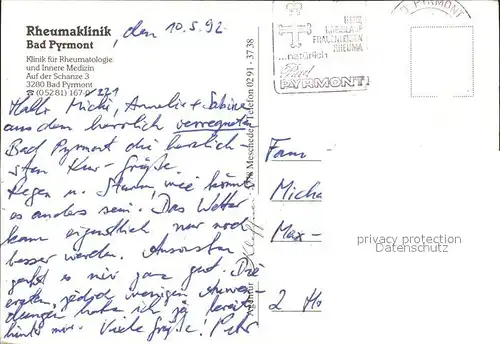 Rheumaklinik
Bad Pyrmont
, den 10.5.92
Klinik für Rheumatologie
und Innere Medizin
Auf der Schanze 3
3280 Bad Pyrmont
☎ (05281) 167-271
Hallo Micki, Annelie + Sabine
aus dem herrlich verregneten
Bad Pyrmont die herzlich-
sten Kur-Grüße.
Regen u. Sturm, wie könnte
es anders sein. Das Wetter
kann eigentlich nur noch
besser werden. Ansonsten
geht es mir ganz gut. Die
ersten, jedoch wenigen Anwen-
dungen habe ich ja bereits
hinter mir. Viele Grüße!
Meschede Telefon 02 91 - 37 38
HERZ
KREISLAUF
FRAUENLEIDEN
RHEUMA
...natürlich
Bad
PYRMONT
PYRMONT
Fam
Micha
Max-
2 Ho
privacy protection
Datenschutz